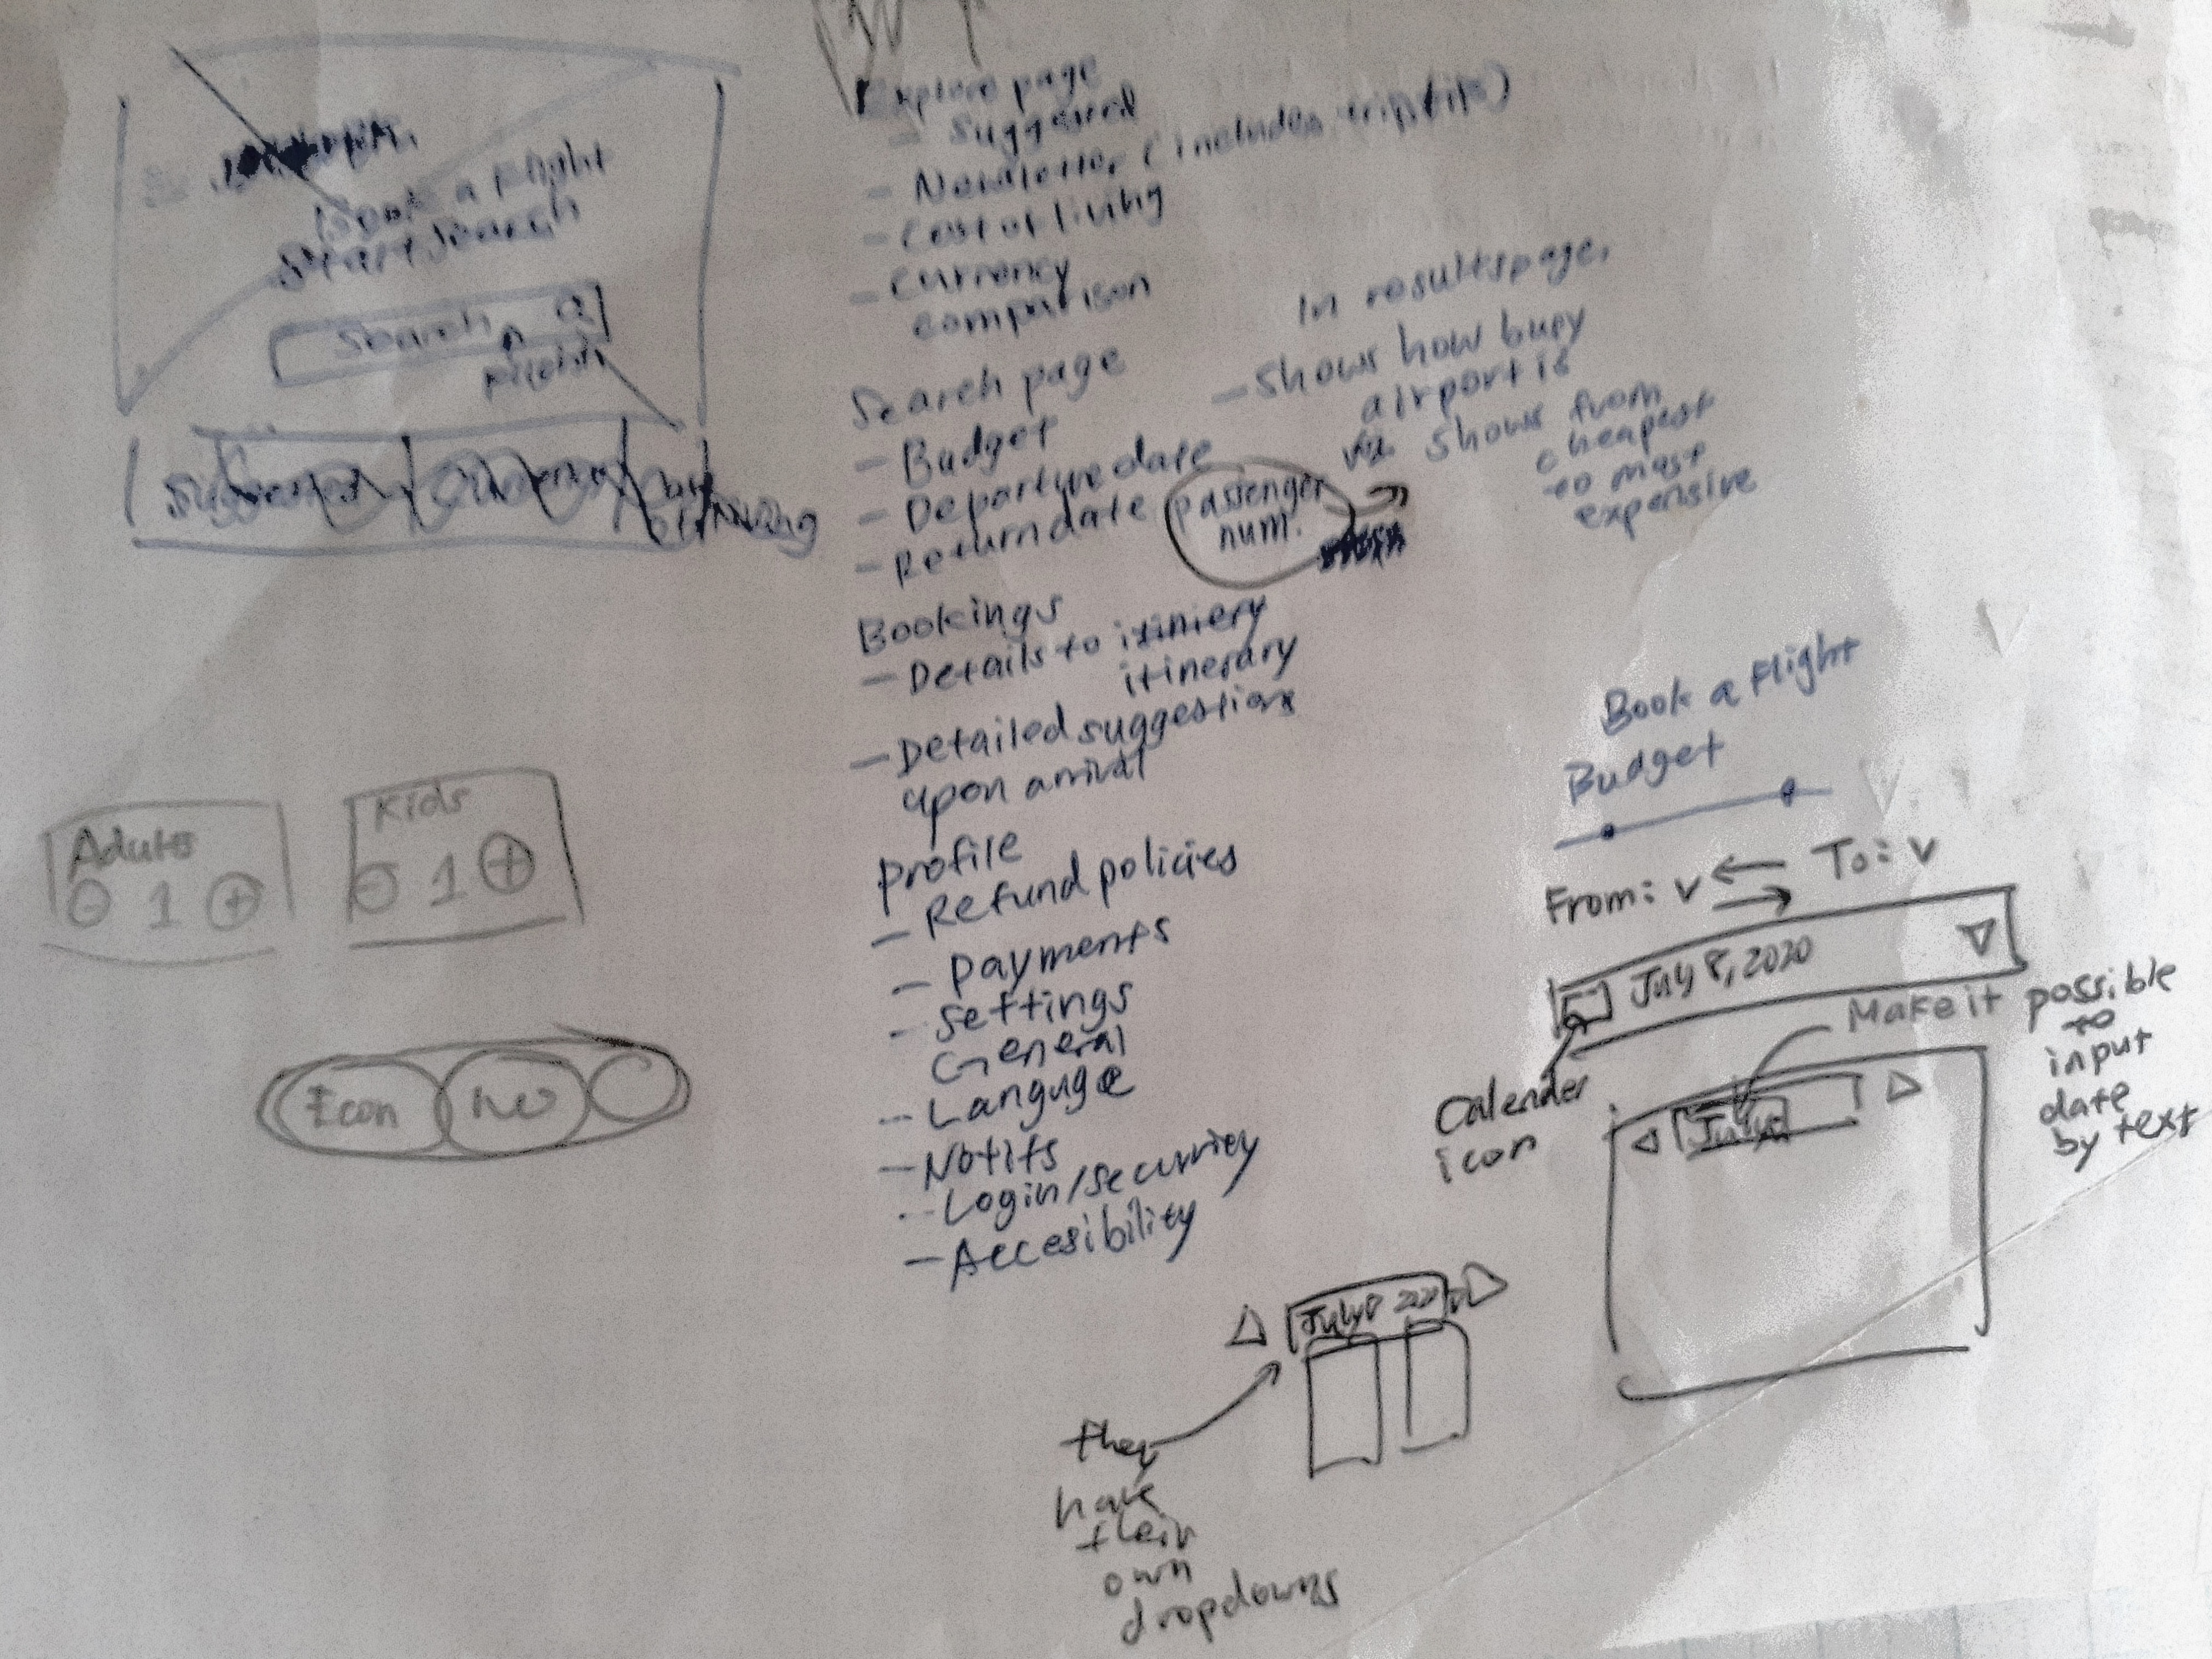 Book a Flight
Start Search
Search
Flights
Suggested
Currency
of living
Explore page
- Suggested
- Newsletter (includes trip
- Cost of living
- Currency
comparison
Search page
- Budget
- Departure date
- Return date
passenger
num.
In results page,
- Shows how busy
airport is
Shows from
cheapest
to most
expensive
Bookings
- Details to itiniery
itinerary
- Detailed suggestions
upon arrival
Profile
- Refund policies
- Payments
- Settings
General
- Languge
- Notifs
- Login/security
- Accesibility
Adults
- 1 +
Kids
- 1 +
Icon
Book a Flight
Budget
From: v To: v
July 8, 2020
Calender
icon
Make it possible
to
input
date
by text
July
July 8 2020
they
have
their
own
dropdowns